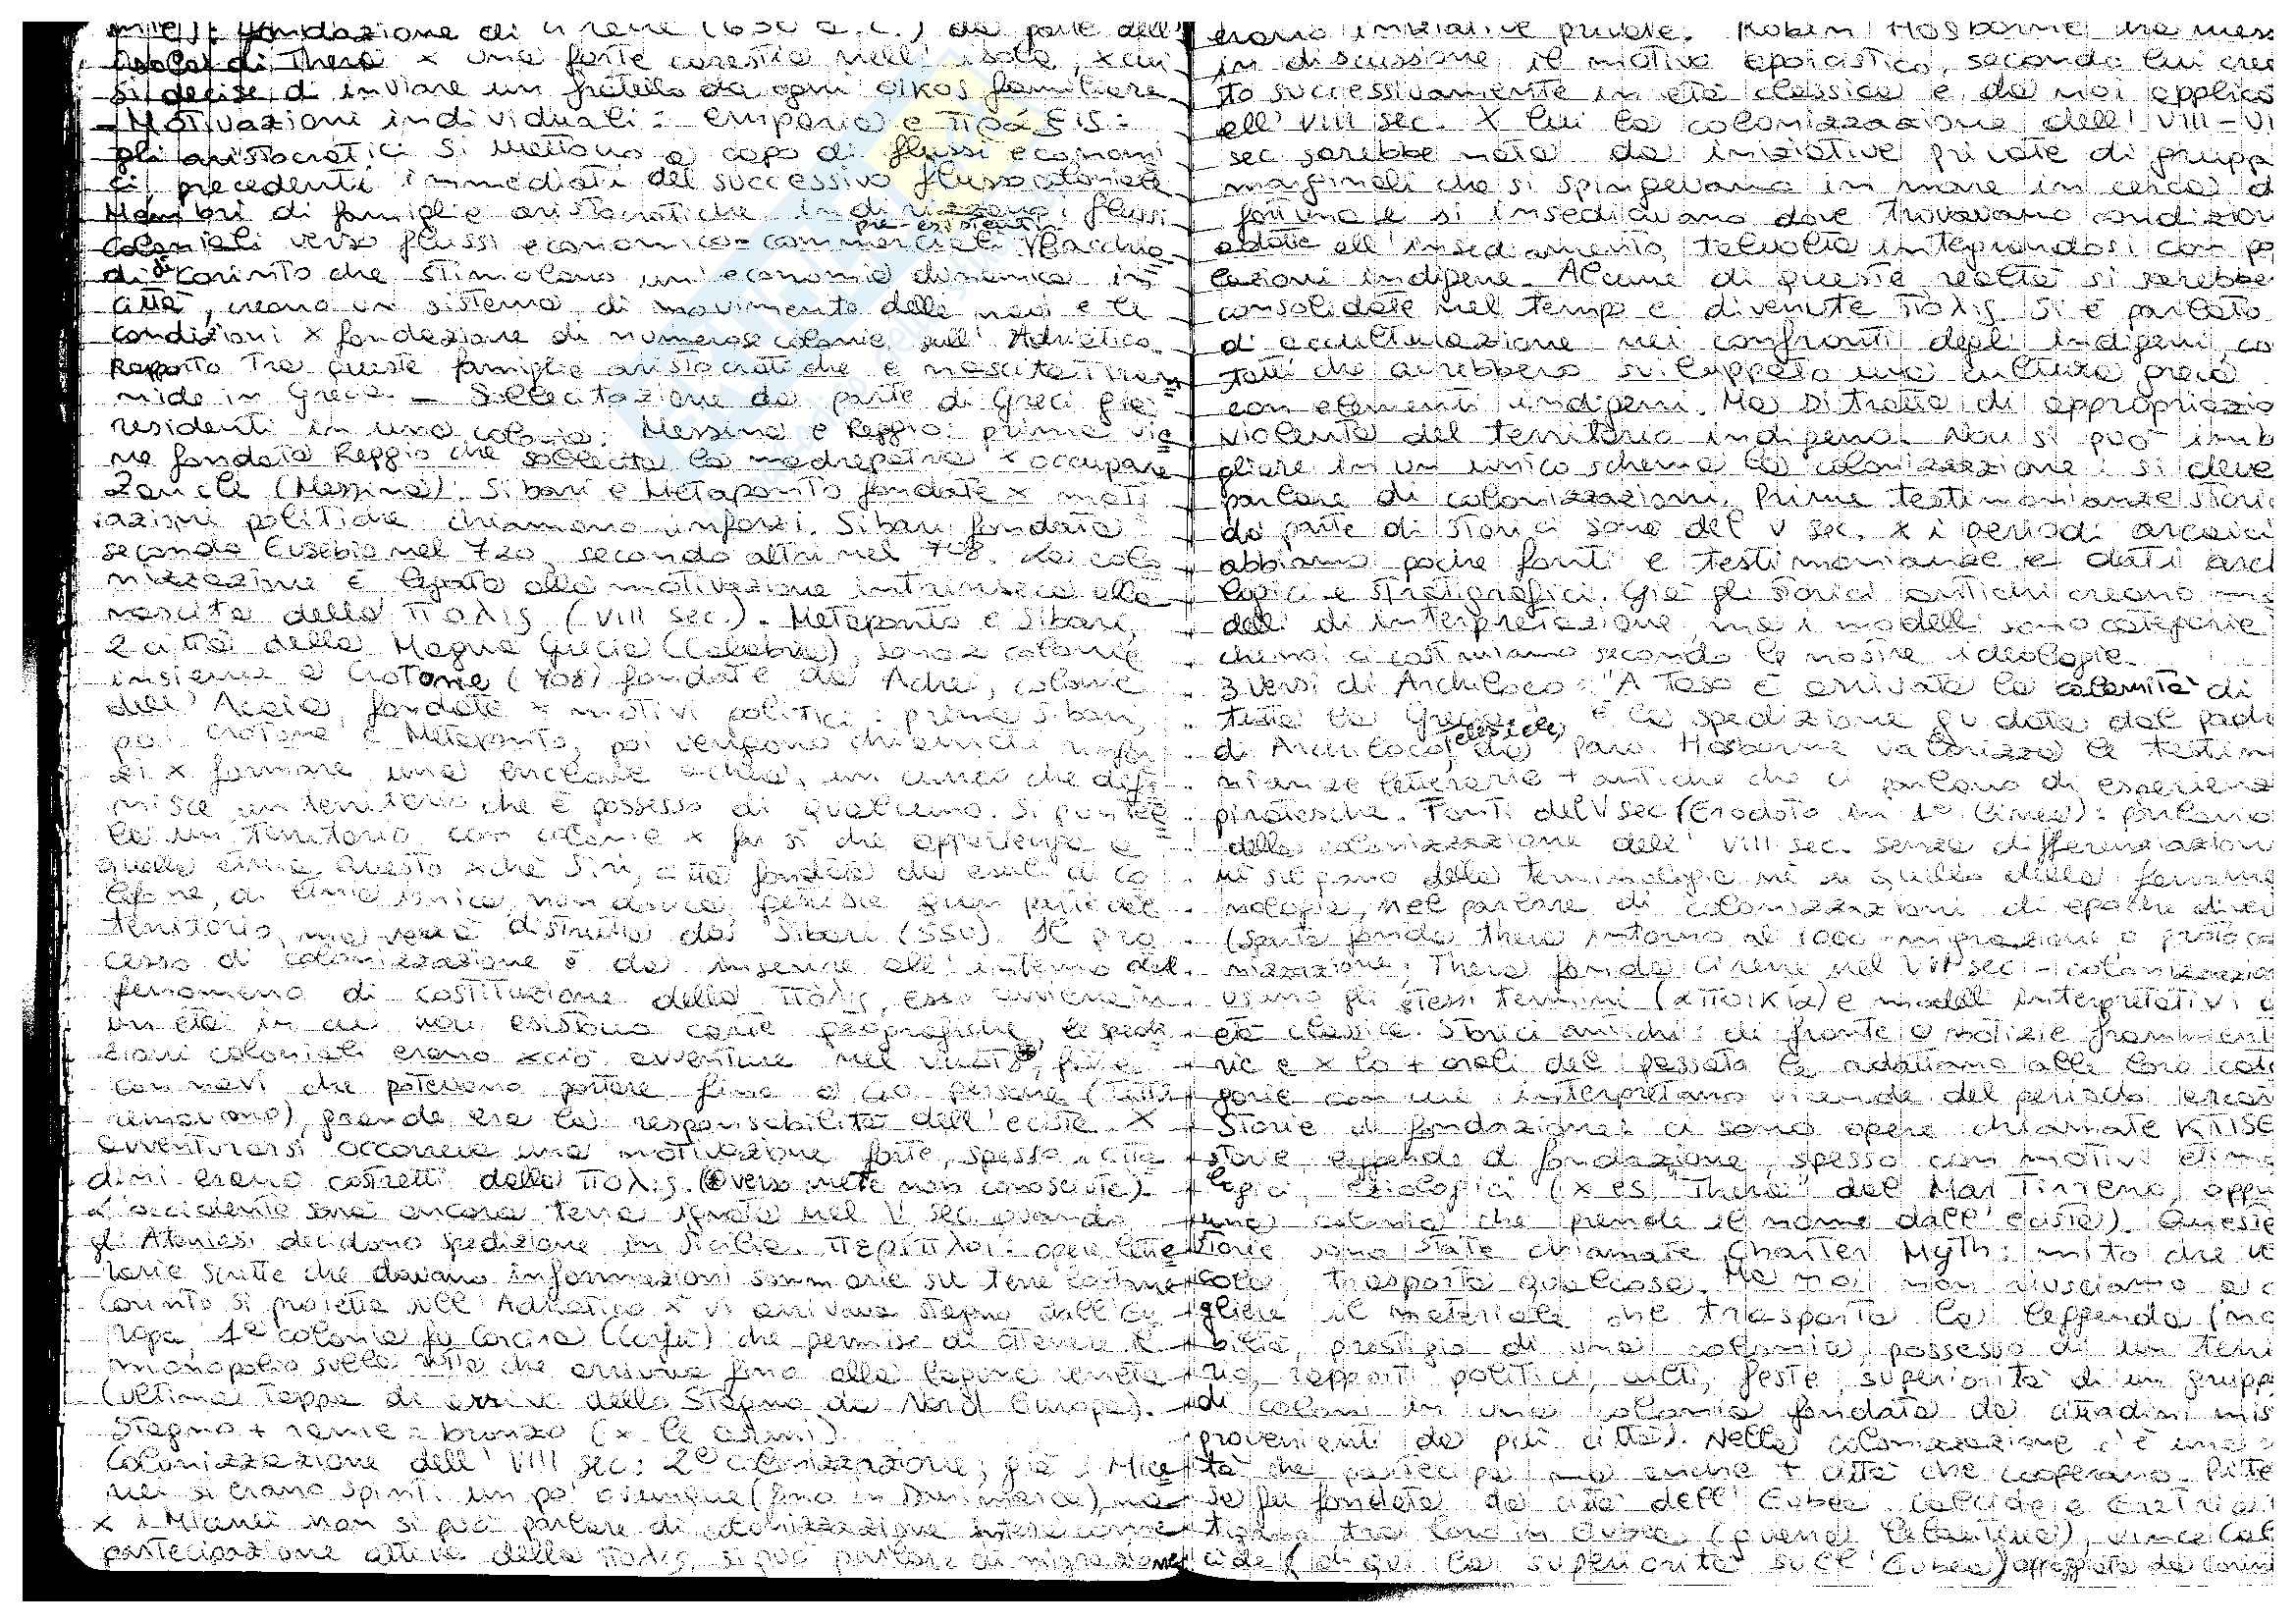 mie): fondazione di Cirene (630 a.C.) da parte dell'
isola di Thera x una forte carestia nell'isola, x cui
si decise di inviare un fratello da ogni oikos familiare
- Motivazioni individuali: emporia e πρᾶξις:
gli aristocratici si mettono a capo di flussi economi
ci, precedenti immediati del successivo flusso coloniale
Membri di famiglie aristocratiche indirizzano i flussi
pre-esistenti
coloniali verso flussi economico-commerciali. I Bacchia
di di Corinto che stimolano un'economia dinamica in
città, creano un sistema di movimento delle navi e le
condizioni x fondazione di numerose colonie sull'Adriatico.
Rapporto tra queste famiglie aristocratiche e nascita Tiran
nide in Grecia. - Sollecitazione da parte di Greci già
residenti in una colonia: Messina e Reggio: prima vie
ne fondata Reggio che sollecita la madrepatria x occupare
Zancle (Messina). Sibari e Metaponto fondate x moti
vazioni politiche chiamano rinforzi. Sibari fondata
secondo Eusebio nel 720, secondo altri nel 708. La colo
nizzazione è legata alla motivazione intrinseca alla
nascita della πολις (VIII sec.). Metaponto e Sibari,
2 città della Magna Grecia (Calabria), sono 2 colonie
insieme a Crotone (708) fondate da Achei, colonie
dell'Acaia, fondate x motivi politici: prima Sibari,
poi Crotone e Metaponto, poi vengono chiamati rinfor
zi x formare una enclave achea, un cuneo che defi
nisce un territorio che è possesso di qualcuno. Si puntel
la un territorio con colonie x far sì che appartenga a
quella etnia. Questo xchè Siri, città fondata da esuli di Co
lofone, di etnia ionica, non dorica, gestisce gran parte del
territorio, ma verrà distrutta da Sibari (550). Il pro
cesso di colonizzazione è da inserire all'interno del
fenomeno di costituzione della πολις, esso avviene in
un'età in cui non esistono carte geografiche, le spedi
zioni coloniali erano xciò avventure nel vuoto, fatte
con navi che potevano portare fino a 60 persone (tutti
remavano), grande era la responsabilità dell'ecista. X
avventurarsi occorreva una motivazione forte, spesso i citta
dini erano costretti dalla πολις. (verso mete non conosciute).
L'occidente sarà ancora terra ignota nel V sec. quando
gli Ateniesi decidono spedizione in Sicilia. περιπλοι: opere lette
rarie scritte che davano informazioni sommarie su terre lontane
Corinto si proietta sull'Adriatico x vi arrivava stagno dall'Eu
ropa, 1ª colonia fu Corcira (Corfù) che permise di ottenere il
monopolio sulla rotta che arrivava fino alla laguna veneta
(ultima tappa di arrivo dello Stagno da Nord Europa).
Stagno + rame = bronzo (x le armi).
Colonizzazione dell'VIII sec: 2ª colonizzazione; già i Mice
nei si erano spinti un po' ovunque (fino in Danimarca), ma
x i Micenei non si può parlare di colonizzazione intesa come
partecipazione attiva della πολις, si può parlare di migrazione
erano iniziative private. Robin Hosborne ha mess
in discussione il motivo apoicistico, secondo lui crea
to successivamente in età classica e da noi applica
all'VIII sec. X lui la colonizzazione dell'VIII-VI
sec sarebbe nata da iniziative private di grupp
marginali che si spingevano in mare in cerca d
fortuna e si insediavano dove trovavano condizion
adatte all'insediamento, talvolta integrandosi con po
lazioni indigene. Alcune di queste realtà si sarebbe
consolidate nel tempo e divenute πολις. Si è parlato
di acculturazione nei confronti degli indigeni, co
tatti che avrebbero sviluppato una cultura greca
con elementi indigeni. Ma si tratta di appropriazio
violenta del territorio indigeno. Non si può imb
gliare in un unico schema la colonizzazione: si deve
parlare di colonizzazioni. Prime testimonianze stori
da parte di storici sono del V sec. x i periodi arcaici
abbiamo poche fonti e testimonianze e dati arch
logici e stratigrafici. Già gli storici antichi creano mo
delli di interpretazione, ma i modelli sono categorie
che noi ci costruiamo secondo le nostre ideologie.
3 versi di Archiloco: "A Taso è arrivata la calamità di
tutta la Grecia", è la spedizione guidata dal padr
Telesicle,
di Archiloco, da Paro. Hosborne valorizza le testim
nianze letterarie + antiche che ci parlano di esperienz
piratesche. Fonti del V sec (Erodoto in 1ª linea): parlano
della colonizzazione dell'VIII sec. senza differenziazion
nè sul piano della terminologia nè su quello della fenome
nologia, nel parlare di colonizzazioni di epoche diver
(Sparta fonda Thera intorno al 1000 - migrazione o protoco
nizzazione; Thera fonda Cirene nel VII sec - colonizzazion
usano gli stessi termini (αποικία) e modelli interpretativi d
età classica. Storici antichi: di fronte a notizie framment
rie e x lo + orali del passato le adattano alle loro cate
gorie con cui interpretano vicende del periodo arcaic
Storie di fondazione: ci sono opere chiamate KTISE
storie, leggende di fondazione, spesso con motivi etimo
logici, eziologici (x es. "Thera" del Mar Tirreno, oppu
una colonia che prende il nome dall'ecista). Queste
storie sono state chiamate Charter Myth: mito che ve
cola, trasporta qualcosa. Ma noi non riusciamo a c
gliere il materiale che trasporta la leggenda (no
biltà, prestigio di una colonia, possesso di un terri
rio, rapporti politici, culti, feste, superiorità di un grupp
di coloni in una colonia fondata da cittadini mis
provenienti da più città). Nella colonizzazione c'è una c
tà che partecipa, ma anche + città che cooperano. Pite
sa fu fondata da città dell'Eubea: Calcide e Eretria
tigano tra loro in Eubea (guerra lelantina), vince Cal
cide (di qui la superiorità sull'Eubea) appoggiata da Corint